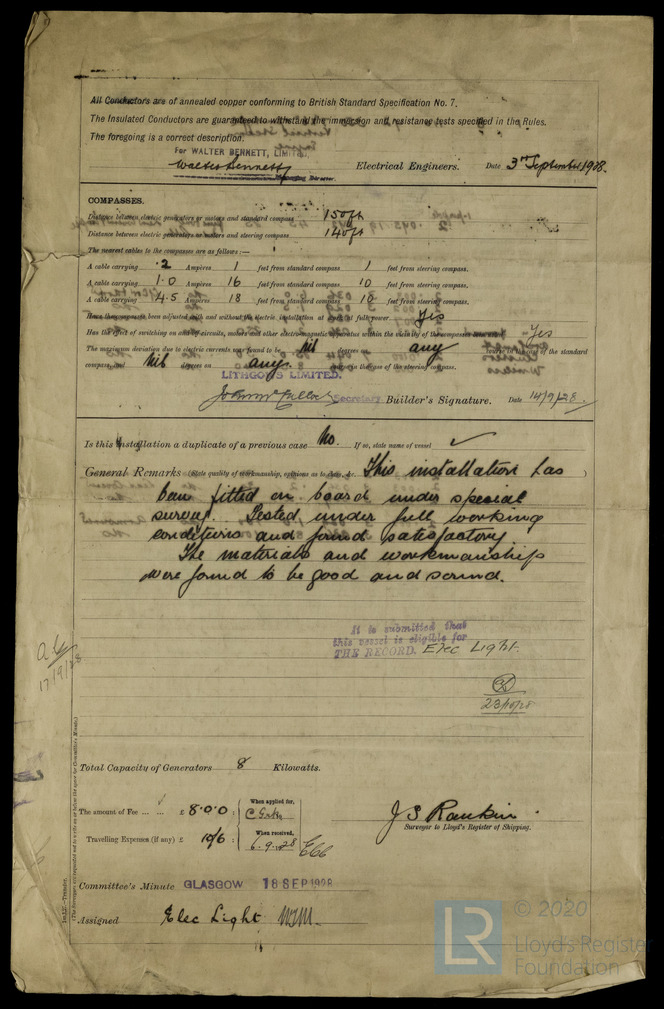 All Conductors are of annealed copper conforming to British Standard Specification No. 7.
The Insulated Conductors are guaranteed to withstand the immersion and resistance tests specified in the Rules.
The foregoing is a correct description.
For WALTER BENNETT, LIMITED.
Walter Bennett Electrical Engineers. Date 3rd September 1928.
Director.
COMPASSES.
Distance between electric generators or motors and standard compass 150ft
Distance between electric generators or motors and steering compass 140ft
The nearest cables to the compasses are as follows:—
A cable carrying .2 Ampères 1 feet from standard compass 1 feet from steering compass.
A cable carrying 1.0 Ampères 16 feet from standard compass 10 feet from steering compass.
A cable carrying 4.5 Ampères 18 feet from standard compass 10 feet from steering compass.
Have the compasses been adjusted with and without the electric installation at work at full power Yes
Has the effect of switching on and off circuits, motors and other electro-magnetic apparatus within the vicinity of the compasses been Yes
The maximum deviation due to electric currents was found to be Nil degrees on any course in the case of the standard
compass, and Nil degrees on any course in the case of the steering compass.
LITHGOWS LIMITED.
Secretary Builder's Signature. Date 14/9/28.
Is this installation a duplicate of a previous case No. If so, state name of vessel ✓
General Remarks (State quality of workmanship, opinions as to class, &c. This installation has
been fitted on board under special
survey. Tested under full working
conditions and found satisfactory.
The materials and workmanship
were found to be good and sound.
It is submitted that
this vessel is eligible for
THE RECORD. Elec Light.
23/10/28
17/9/28
Total Capacity of Generators 8 Kilowatts.
The amount of Fee ... ... £ 8.0.0 : When applied for,
Travelling Expenses (if any) £ 10/6 : When received, 6.9.28
J S Rankin
Surveyor to Lloyd's Register of Shipping.
Committee's Minute GLASGOW 18 SEP 1928
Assigned Elec Light
LR © 2020
Lloyd's Register
Foundation